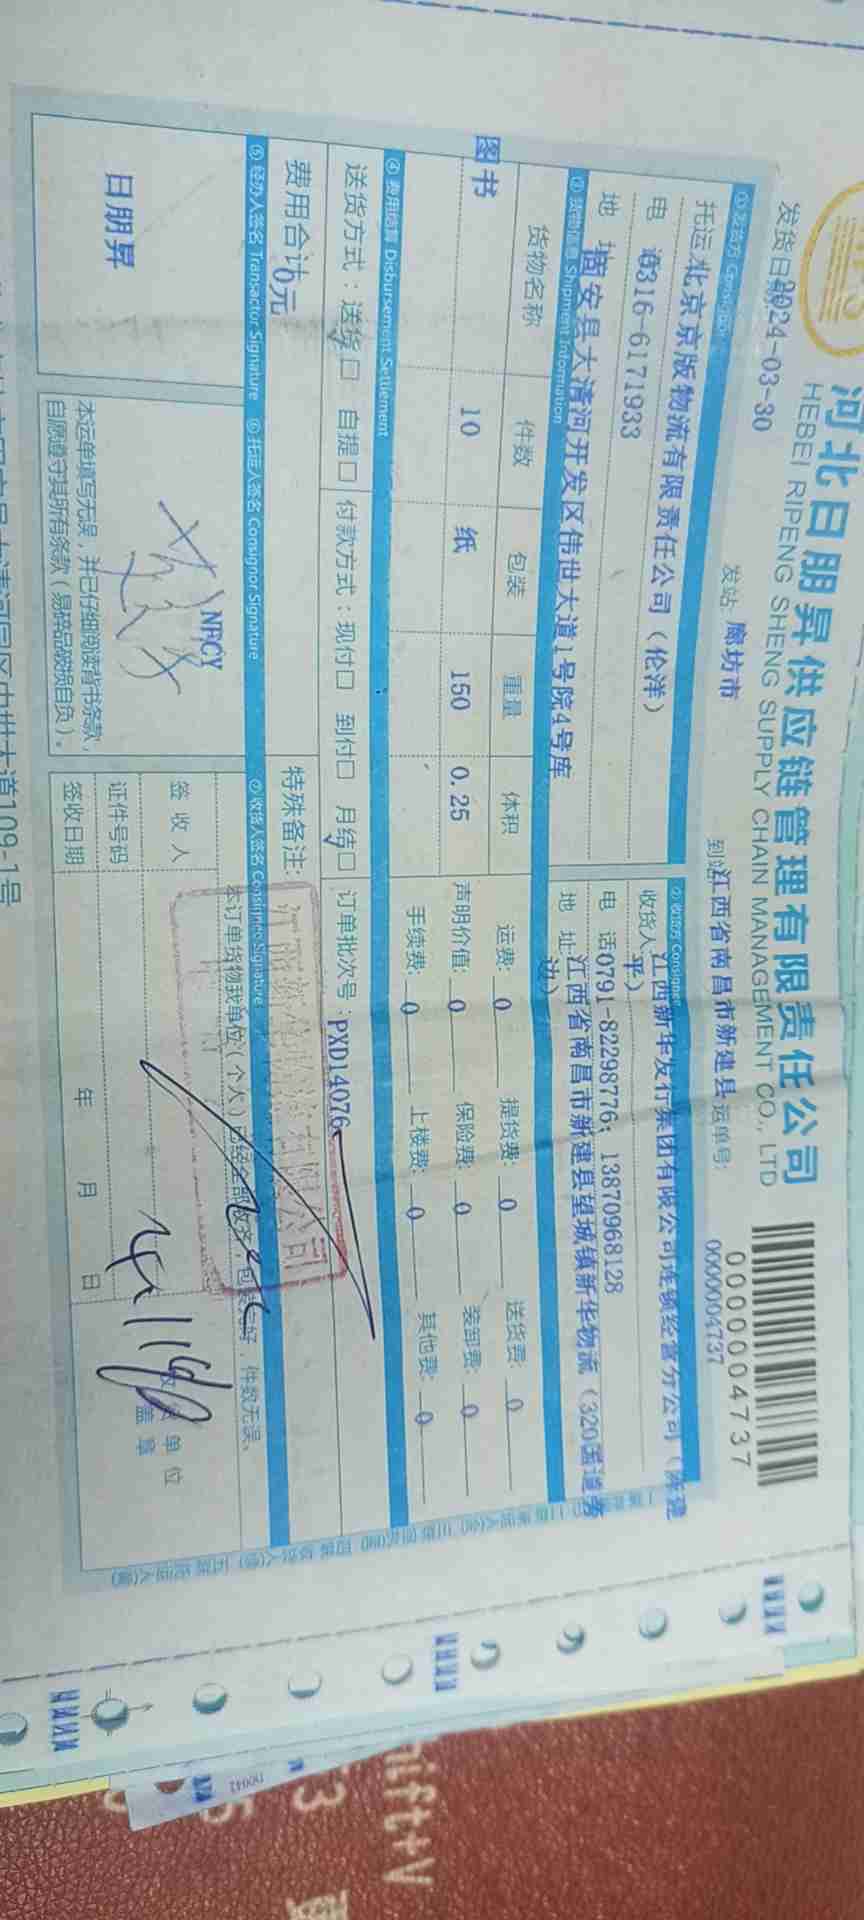 河北日朋昇供应链管理有限责任公司
HEBEI RIPENG SHENG SUPPLY CHAIN MANAGEMENT CO., LTD
0000004737
发货日期 2024-03-30 发站 廊坊市 到站 江西省南昌市新建县 运单号: 0000004737
①发货方 Consignor
②收货方 Consignee
托运 北京京版物流有限责任公司（伦洋）
收货人 江西新华发行集团有限公司连锁经营分公司（涂建平）
电 话 0316-6171933
电 话 0791-82298776; 13870968128
地 址 固安县大清河开发区伟世大道1号院4号库
地 址: 江西省南昌市新建县望城镇新华物流（320国道旁边）
③ 货物信息 Shipment Information
货物名称 件数 包装 重量 体积
运费: 0 提货费: 0 送货费: 0
图书 10 纸 150 0.25
声明价值: 0 保险费: 0 装卸费: 0
手续费: 0 上楼费: 0 其他费: 0
④ 费用结算 Disbursement Settlement
送货方式：送货□ 自提□ 付款方式：现付□ 到付□ 月结□ 订单批次号：PXD14076
费用合计 0元
特殊备注:
⑤ 经办人签名 Transactor Signature ⑥ 托运人签名 Consignor Signature ⑦ 收货人签名 Consignee Signature
日朋昇
NRCY
本运单填写无误，并已仔细阅读背书条款，
自愿遵守其所有条款（易碎品破损自负）。
本订单货物我单位（个人）已经全部收齐，包装完好，件数无误、
签 收 人
证件号码
签收日期 年 月 日
收 货 单 位
盖 章
道109-1号